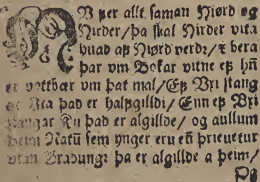 NU þer allt saman Niørd og
Nirder/ þa skal Nirder vita
huad aff Niørd verdr/ ꝛ bera
þar vm Bokar vitne eß hñ
er vottbær vm þat mal/ Eß Vri stang
ar Kua þad er halßgilldi/ Enn eß Vri
stangar Ku þad er algillde/ og aullum
þeim Natũ sem ynger eru eñ þrieuetur
vtan Bradung: þa er algillde a þeim/
Og